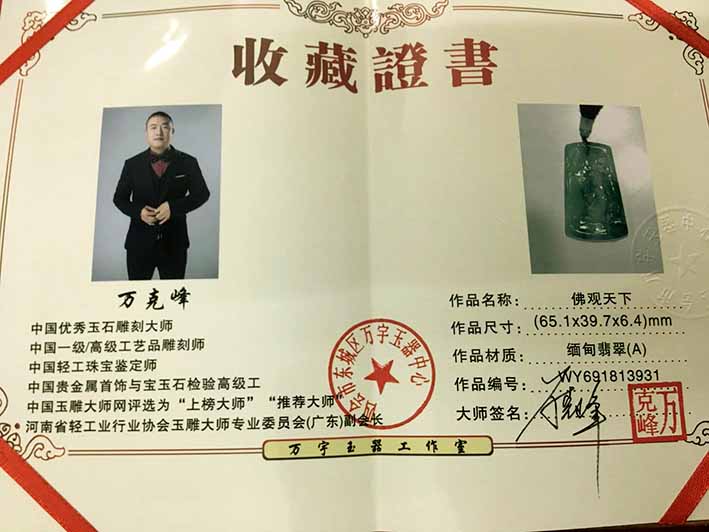 收藏證書
万克峰
中国优秀玉石雕刻大师
中国一级/高级工艺品雕刻师
中国轻工珠宝鉴定师
中国贵金属首饰与宝玉石检验高级工
中国玉雕大师网评选为“上榜大师”“推荐大师”
河南省轻工业行业协会玉雕大师专业委员会(广东)副会长
作品名称: 佛观天下
作品尺寸: (65.1x39.7x6.4)mm
作品材质: 缅甸翡翠(A)
作品编号: WY691813931
大师签名:
万克峰
四会市东城区万宇玉器中心
万宇玉器工作室